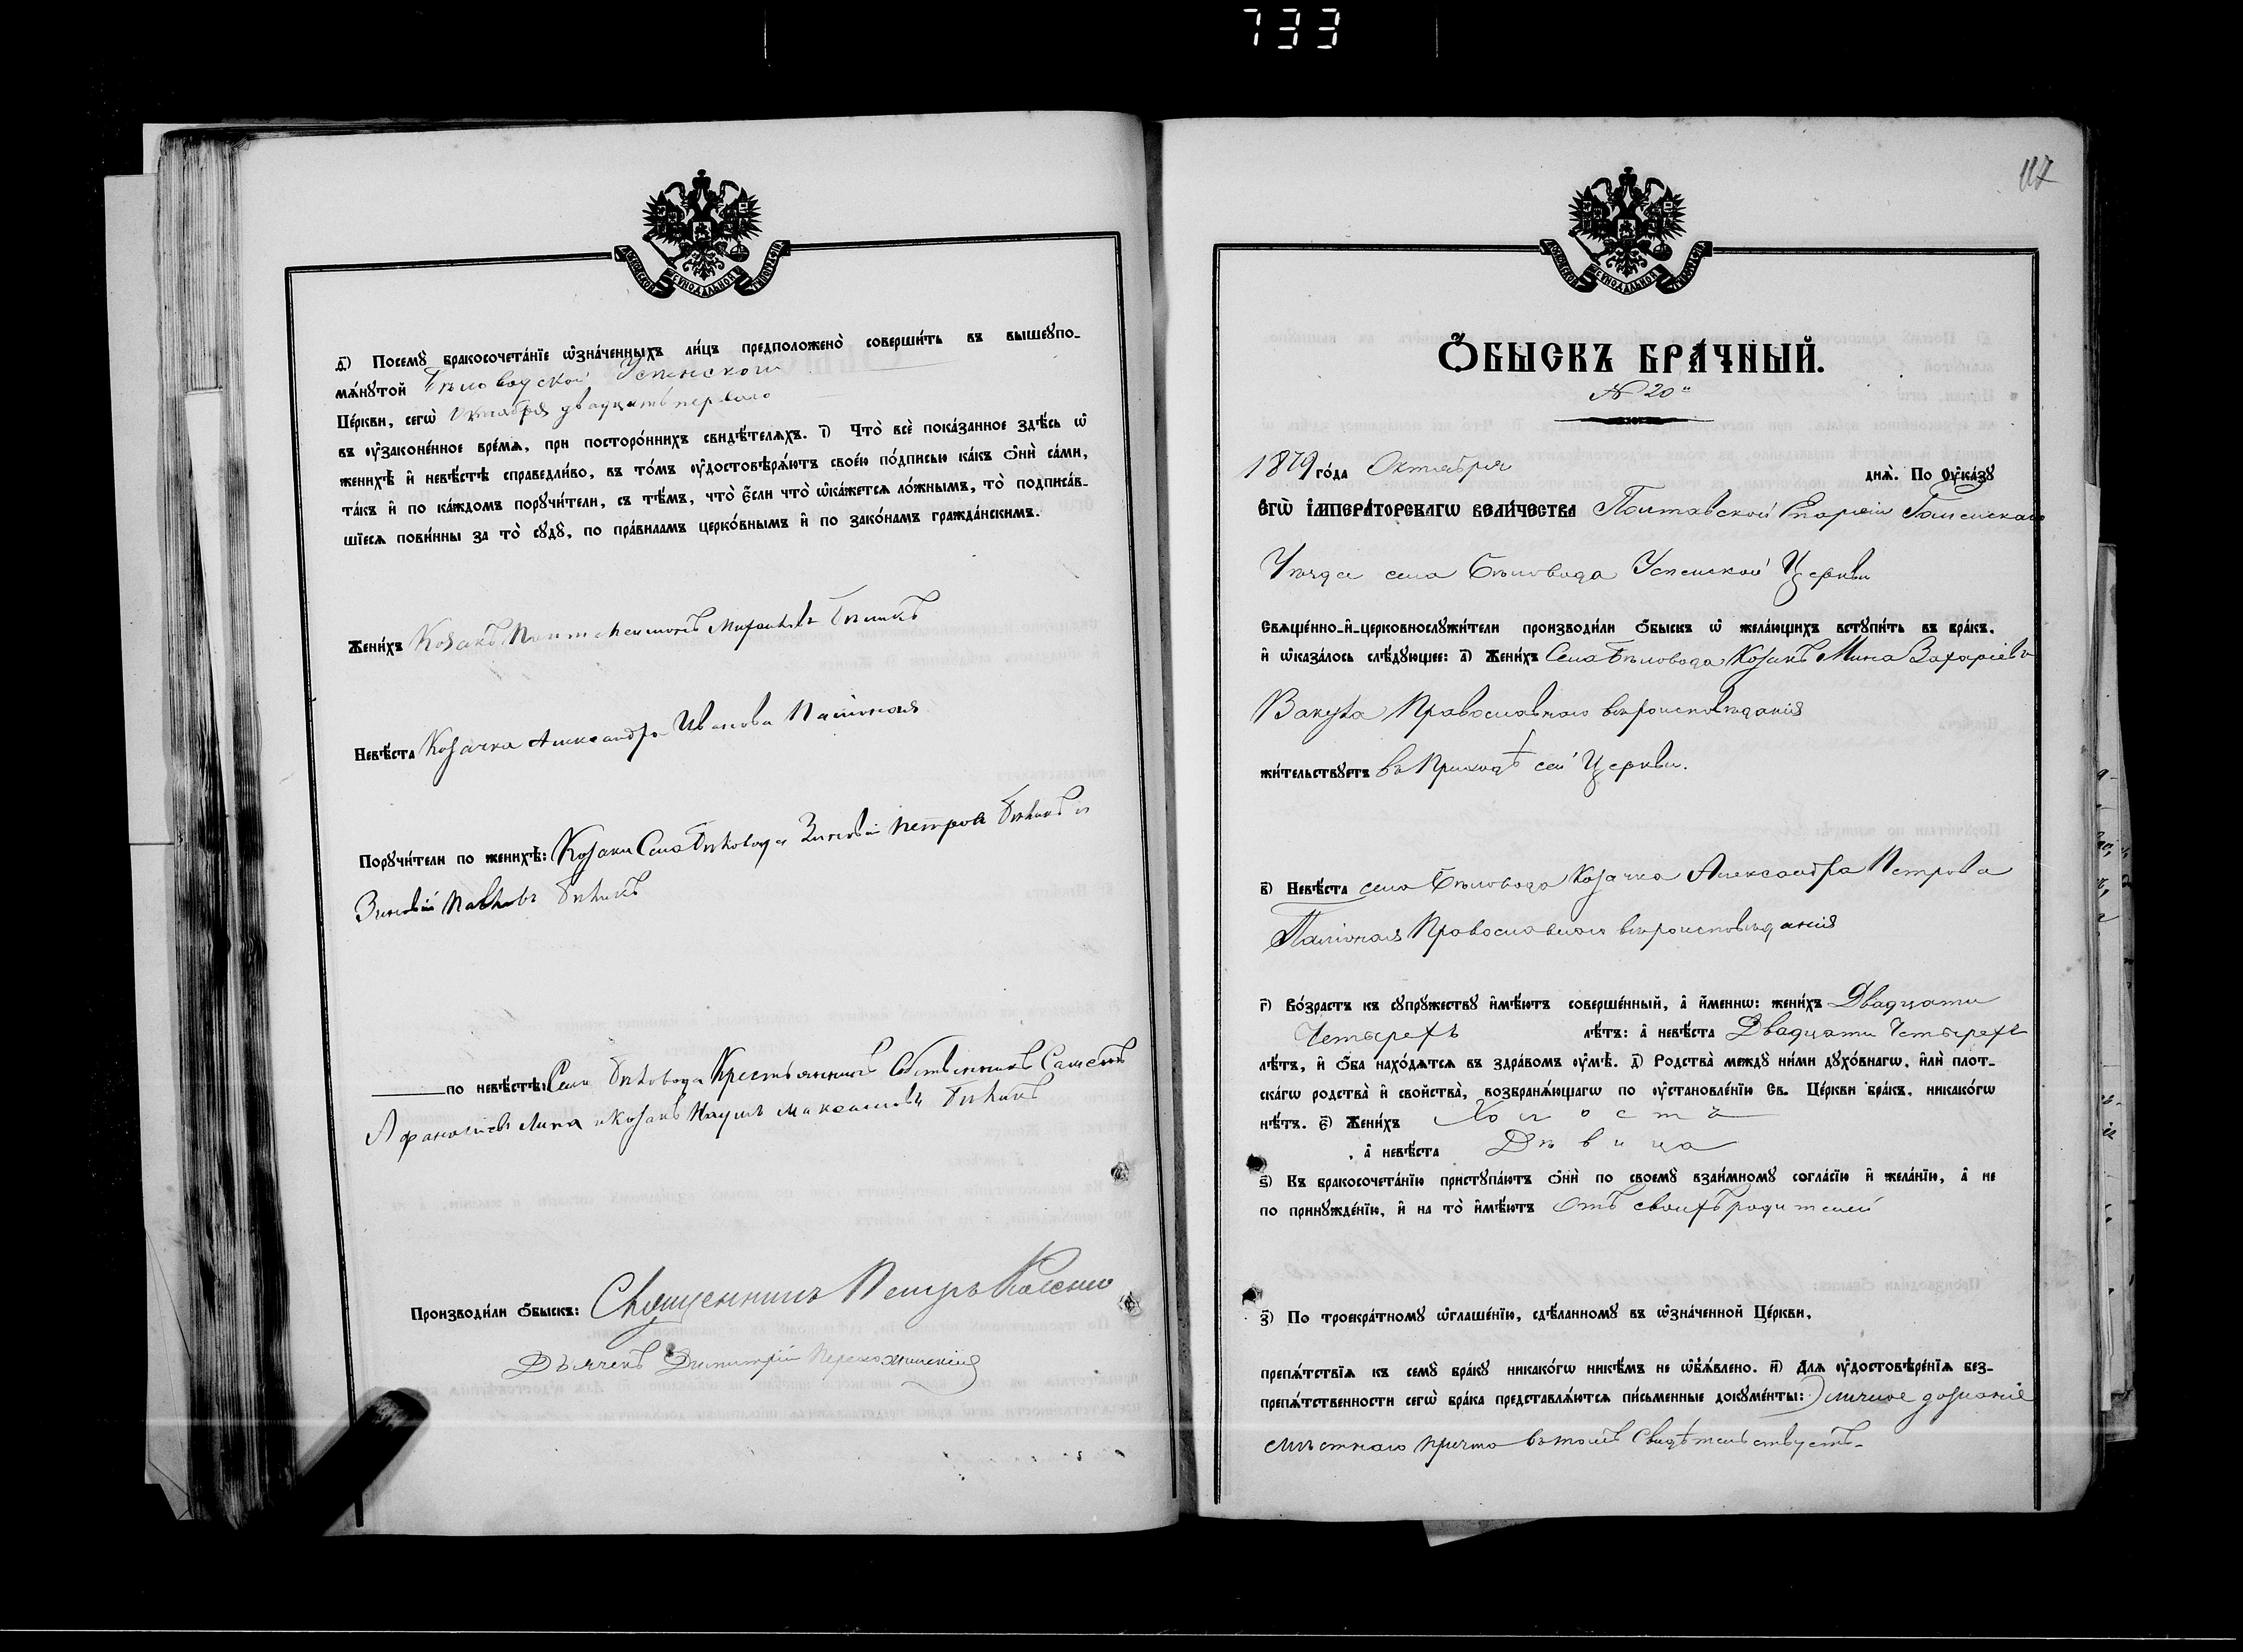 733
МОСКОВСКОЙ СУНОДАЛЬНОЙ ТИПОГРАФІИ
ѳ҃) Посемꙋ бракосочета́нїе ѡ҆зна́ченныхъ ли́цъ предположено̀ соверши́ть въ вышеꙋпо-
мѧ́нꙋтой Бѣловодской Успенской
Це́ркви, сегѡ̀ Октября двадцать перваго
въ ᲂу҆законе́нное вре́мѧ, при посторо́ннихъ свидѣ́телѧхъ. і҃) Что̀ всѐ пока́занное здѣ́сь ѡ҆
женихѣ̀ и҆ невѣ́стѣ справедли́во, въ то́мъ ᲂу҆достовѣрѧ́ютъ свое́ю по́дписью ка́къ ѻ҆нѝ са́ми,
та́къ и҆ по ка́ждомъ порꙋчи́тели, съ тѣ́мъ, что̀ є҆́сли что̀ ѡ҆ка́жетсѧ ло́жнымъ, то̀ подписа́в-
шїесѧ пови́нны за то̀ сꙋдꙋ̀, по пра́виламъ церко́внымъ и҆ по зако́намъ гражда́нскимъ.
Жени́хъ Козакъ Пантелеимонъ Бѣликъ
Невѣ́ста Козачка Александра Иванова
Порꙋчи́тели по женихѣ̀: Козаки Села Бѣловода Зиновій Петровъ Бѣликъ и
Зиновій Павловъ Бѣликъ
по невѣ́стѣ: Села Бѣловода Крестьянинъ Собственникъ
Козакъ Наумъ Максимовъ Бѣликъ
Производи́ли ѻ҆́быскъ: Священникъ Петръ
Дьячекъ Димитрій
117
МОСКОВСКОЙ СУНОДАЛЬНОЙ ТИПОГРАФІИ
Ѻ҆́БЫСКЪ БРА́ЧНЫЙ.
№ 20й
1879 го́да Октября днѧ̀. По Оу҆ка́зꙋ
ЕГѠ̀ І҆МПЕРА́ТОРСКАГѠ ВЕЛИ́ЧЕСТВА Полтавской Епархіи
Уѣзда села Бѣловода Успенской Церкви
Свѧще́нно-и҆-церковнослꙋжи́тели производи́ли ѻ҆́быскъ ѡ҆ жела́ющихъ встꙋпи́ть въ бра́къ,
и҆ ѡ҆каза́лось слѣ́дꙋющее: а҃) Жени́хъ Села Бѣловода Козакъ Мина Захаріевъ
Вакула Православнаго вѣроисповѣданія
жи́тельствꙋетъ въ Приходѣ сей Церкви.
в҃) Невѣ́ста села Бѣловода Козачка Александра Петрова
Православнаго вѣроисповѣданія
г҃) Во́зрастъ къ сꙋпрꙋ́жествꙋ и҆мѣ́ютъ соверше́нный, а҆ и҆́меннѡ: жени́хъ Двадцати
Четырехъ лѣ́тъ: а҆ невѣ́ста Двадцати Четырехъ
лѣ́тъ, и҆ ѻ҆́ба нахо́дѧтсѧ въ здра́вомъ ᲂу҆мѣ̀. д҃) Родства̀ междꙋ ни́ми дꙋхо́внагѡ, и҆лѝ плот-
ска́гѡ родства̀ и҆ свойства̀, возбранѧ́ющагѡ по ᲂу҆становле́нїю Св. Це́ркви бра́къ, никако́гѡ
нѣ́тъ. є҃) Жени́хъ Холостъ
, а҆ невѣ́ста Дѣвица
ѕ҃) Къ бракосочета́нїю пристꙋпа́ютъ ѻ҆нѝ по своемꙋ̀ взаи́мномꙋ согла́сїю и҆ жела́нїю, а҆ не
по принꙋжде́нїю, и҆ на то̀ и҆мѣ́ютъ отъ своихъ родителей
з҃) По троекра́тномꙋ ѡ҆глаше́нїю, сдѣ́ланномꙋ въ ѡ҆зна́ченной Це́ркви,
препѧ́тствїѧ къ семꙋ̀ бра́кꙋ никако́гѡ никѣ́мъ не ѡ҆б̾ѧ́влено. и҃) Длѧ ᲂу҆достовѣре́нїѧ без-
препѧ́тственности сегѡ̀ бра́ка представлѧ́ютсѧ пи́сьменные докꙋме́нты: личное дознаніе
мѣстнаго причта въ томъ Свидѣтельствуетъ